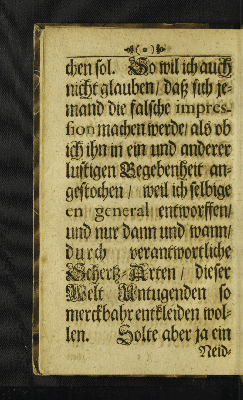 ( o )
chen sol. So wil ich auch
nicht glauben / daß sich je-
mand die falsche impres-
sion machen werde / als ob
ich ihn in ein und anderer
lustigen Begebenheit an-
gestochen / weil ich selbige
en general entworffen /
und nur dann und wann /
durch verantwortliche
Schertz-Arten / dieser
Welt Untugenden so
merckbahr entkleiden wol-
len. Solte aber ja ein
Neid-